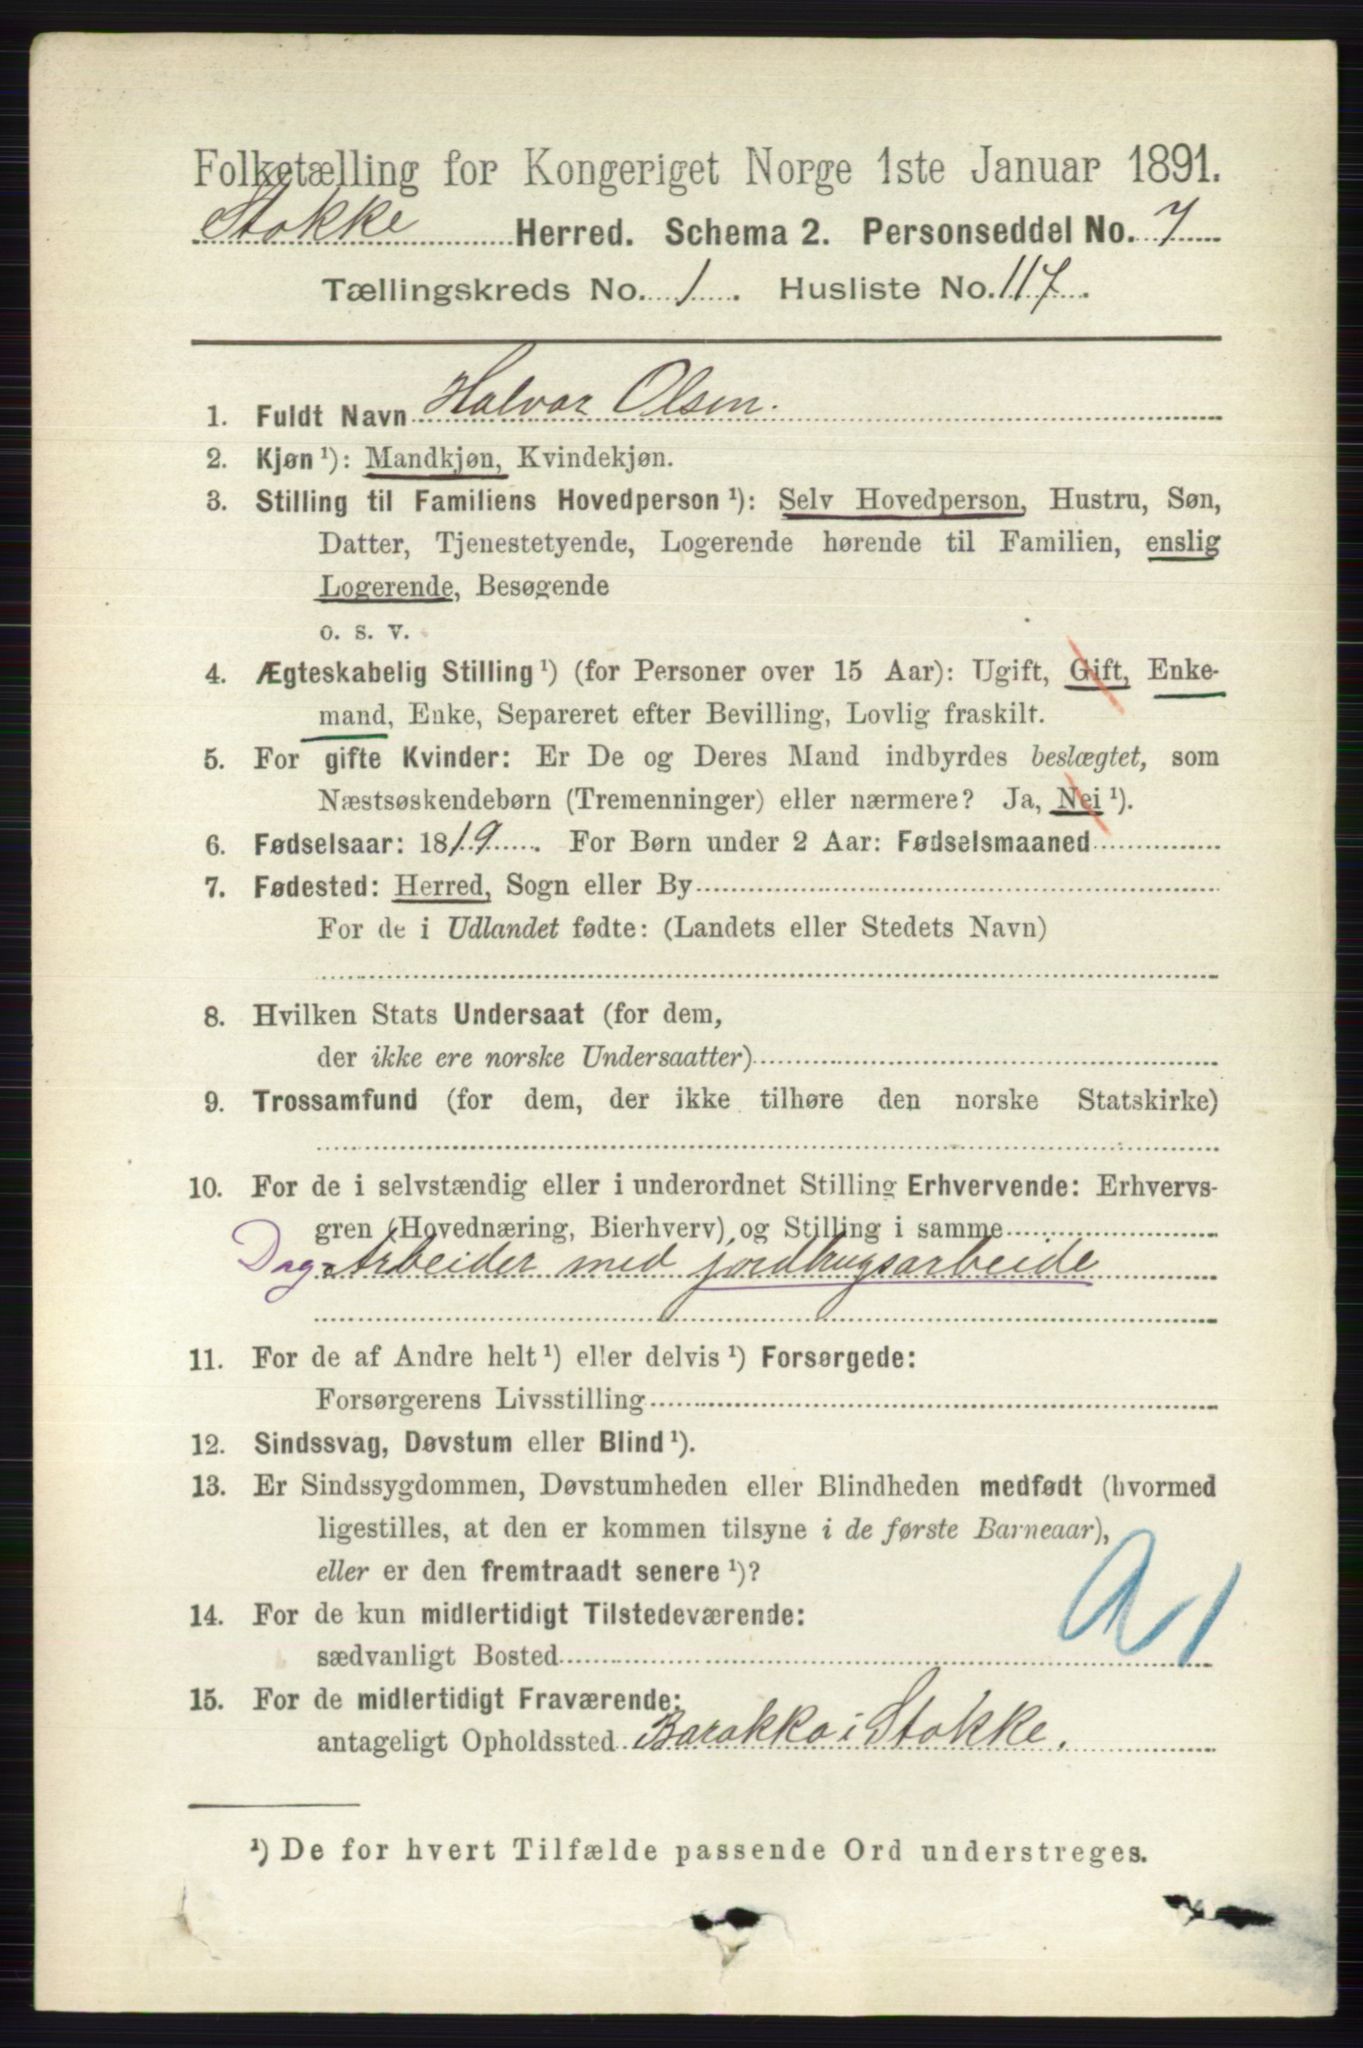 Folketælling for Kongeriget Norge 1ste Januar 1891.
Stokke Herred. Schema 2. Personseddel No. 7
Tællingskreds No. 1. Husliste No. 117.
1. Fuldt Navn Halvor Olsen.
2. Kjøn ¹): Mandkjøn, Kvindekjøn.
3. Stilling til Familiens Hovedperson ¹): Selv Hovedperson, Hustru, Søn,
Datter, Tjenestetyende, Logerende hørende til Familien, enslig
Logerende, Besøgende
o. s. v.
4. Ægteskabelig Stilling ¹) (for Personer over 15 Aar): Ugift, Gift, Enke-
mand, Enke, Separeret efter Bevilling, Lovlig fraskilt.
5. For gifte Kvinder: Er De og Deres Mand indbyrdes beslægtet, som
Næstsøskendebørn (Tremenninger) eller nærmere? Ja, Nei ¹).
6. Fødselsaar: 1819. For Børn under 2 Aar: Fødselsmaaned
7. Fødested: Herred, Sogn eller By
For de i Udlandet fødte: (Landets eller Stedets Navn)
8. Hvilken Stats Undersaat (for dem,
der ikke ere norske Undersaatter)
9. Trossamfund (for dem, der ikke tilhøre den norske Statskirke)
10. For de i selvstændig eller i underordnet Stilling Erhvervende: Erhvervs-
gren (Hovednæring, Bierhverv) og Stilling i samme
Dag-Arbeider med jordbrugsarbeide
11. For de af Andre helt ¹) eller delvis ¹) Forsørgede:
Forsørgerens Livsstilling
12. Sindssvag, Døvstum eller Blind ¹).
13. Er Sindssygdommen, Døvstumheden eller Blindheden medfødt (hvormed
ligestilles, at den er kommen tilsyne i de første Barneaar),
eller er den fremtraadt senere ¹)?
14. For de kun midlertidigt Tilstedeværende:
sædvanligt Bosted
15. For de midlertidigt Fraværende:
antageligt Opholdssted Barakka i Stokke.
¹) De for hvert Tilfælde passende Ord understreges.